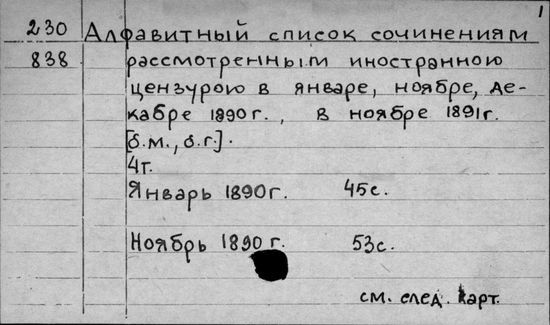 1
230 Алфавитный список сочинениям
838 рассмотренным иностранною
цензурою в январе, ноябре, де-
кабре 1890 г., в ноябре 1891 г.
[б.м., б.г.].
4 т.
Январь 1890 г. 45 с.
Ноябрь 1890 г. 53 с.
см. след. карт.